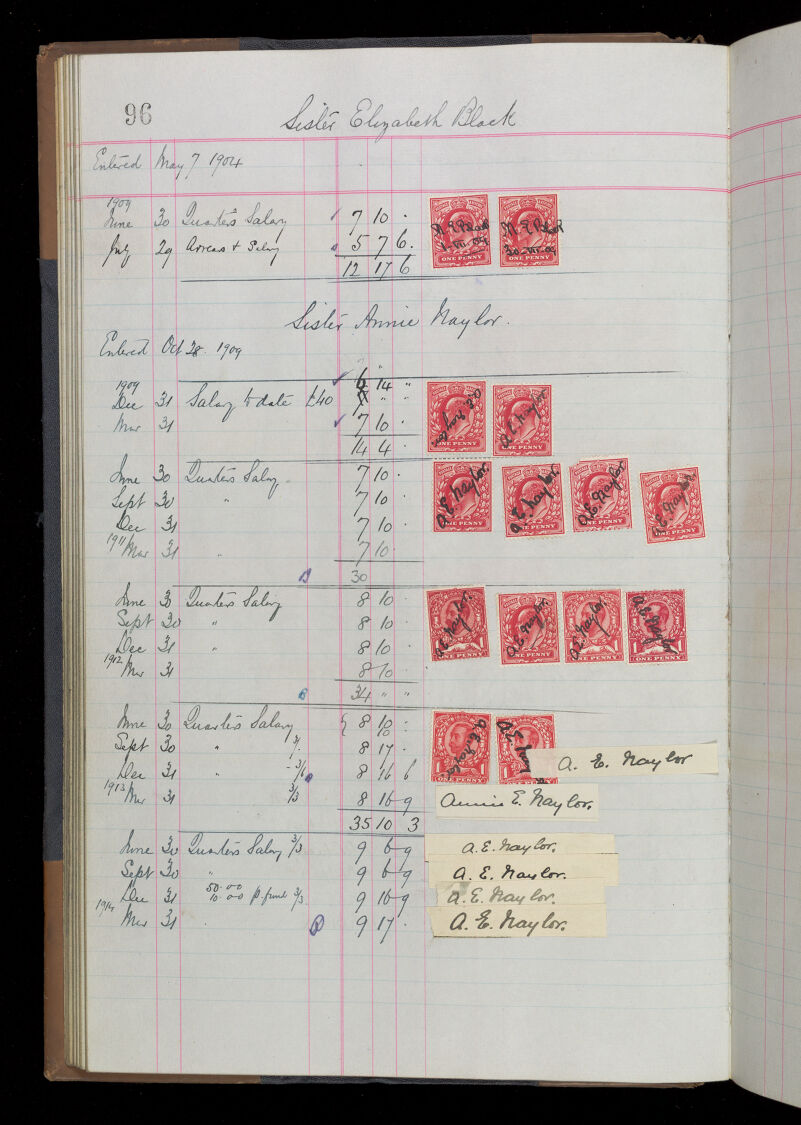 96
Sister Elizabeth Black
Entered May 7 1904
1909
June 30 Quarter's Salary 7 10 ·
July 29 Arrears & Salary 5 7 6.
12 17 6
ONE PENNY ONE PENNY
Sister Annie Naylor.
Entered Oct 28. 1909
6 14 "
1909
Dec 31 Salary to date £40
Mar 31 7 10 ·
14 4 ·
ONE PENNY ONE PENNY
A.E. Naylor
June 30 Quarters Salary 7 10 ·
Sept 30 " 7 10 ·
Dec 31 7 10 ·
1911 Mar 31 " 7 10 ·
30
A.E. Naylor. A.E. Naylor A.E. Naylor A.E. Naylor
ONE PENNY ONE PENNY ONE PENNY ONE PENNY
June 30 Quarters Salary 8 10 ·
Sept 30 " 8 10 ·
Dec 31 " 8 10 ·
1912 Mar 31 8 10 ·
34 " "
A.E. Naylor. A.E. Naylor. A.E. Naylor. A.E. Naylor
ONE PENNY ONE PENNY ONE PENNY ONE PENNY
June 30 Quarters Salary 8 10 ·
Sept 30 " 8 17 ·
Dec 31 " 3/6 8 16 6
1913 Mar 31 3/3 8 16 9
35 10 3
A.E. Naylor
ONE PENNY
A. E. Naylor
Annie E. Naylor.
June 30 Quarters Salary 3/3 9 6 9 A.E. Naylor.
Sept 30 " 9 6 9 A. E. Naylor.
Dec 31 50.00 10.00 p. fund 3/3 9 16 9 A. E. Naylor.
1914 Mar 31 9 17 · A. E. Naylor.